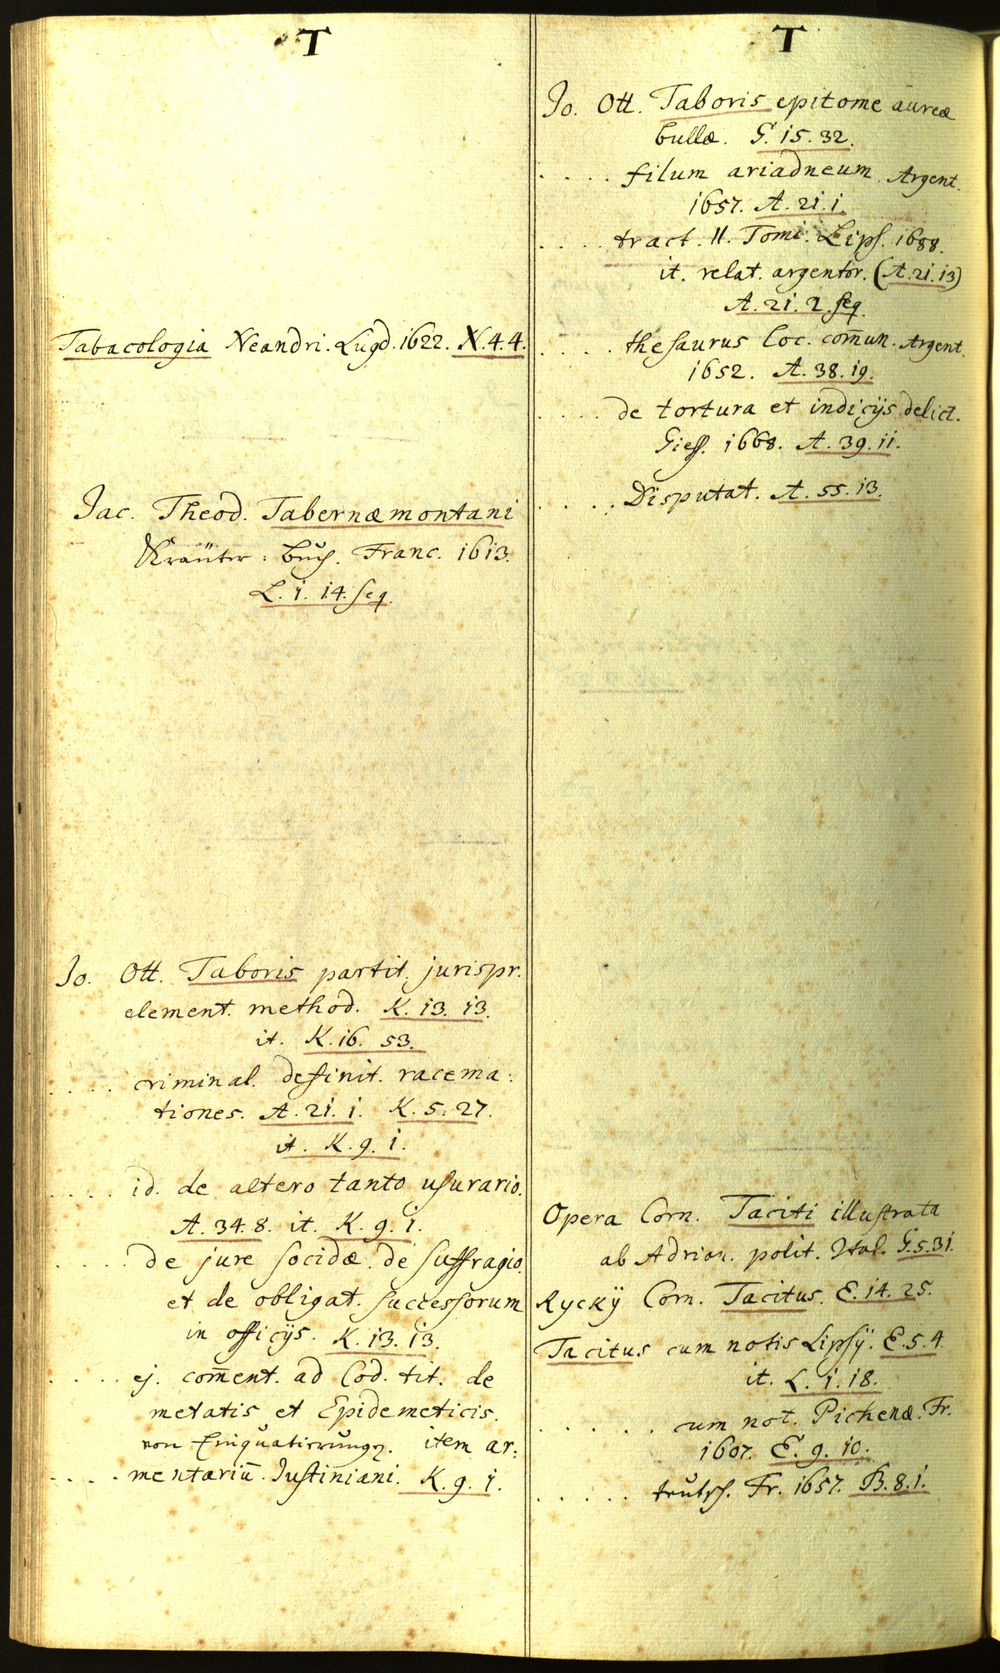 T
Tabacologia Neandri. Lugd. 1622. N. 4. 4.
Jac. Theod. Tabernæmontani
Kraüter: büch. Franc. 1613.
L. 1. 14. seq.
Jo. Ott. Taboris partit. jurispr.
element. method. K. 13. 13.
it. K. 16. 53.
. . . . criminal. definit. racema:
tiones. A. 21. 1. K. 5. 27.
it. K. 9. 1.
. . . . id. de altero tanto usurario.
A. 34. 8. it. K. 9. 1.
. . . . de jure socidæ. de suffragio.
et de obligat. successorum
in officijs. K. 13. 13.
. . . . ej. com̄ent. ad Cod. tit. de
metatis et Epidemeticis.
von Einquatirung. item ar:
. . . . mentariū Justiniani. K. 9. 1.
T
Jo. Ott. Taboris epitome aureæ
bullæ. G. 15. 32.
. . . . filum ariadneum. Argent.
1657. A. 21. 1.
. . . . tract. II. Tomi. Lips. 1688.
it. relat. argentor. (A. 21. 13)
A. 21. 2. seq.
. . . . thesaurus loc. com̄un. Argent.
1652. A. 38. 19.
. . . . de tortura et indicijs delict.
Giess. 1668. A. 39. 11.
. . . . Disputat. A. 55. 13.
Opera Corn. Taciti illustrata
ab Adrian. polit. Ital. G. 5. 31.
Ryckÿ Corn. Tacitus. E. 14. 25.
Tacitus cum notis Lipsÿ. E. 5. 4.
it. L. 1. 18.
. . . . . . cum not. Pichenæ. Fr.
1607. E. 9. 10.
. . . . . teütsch. Fr. 1657. B. 8. 1.